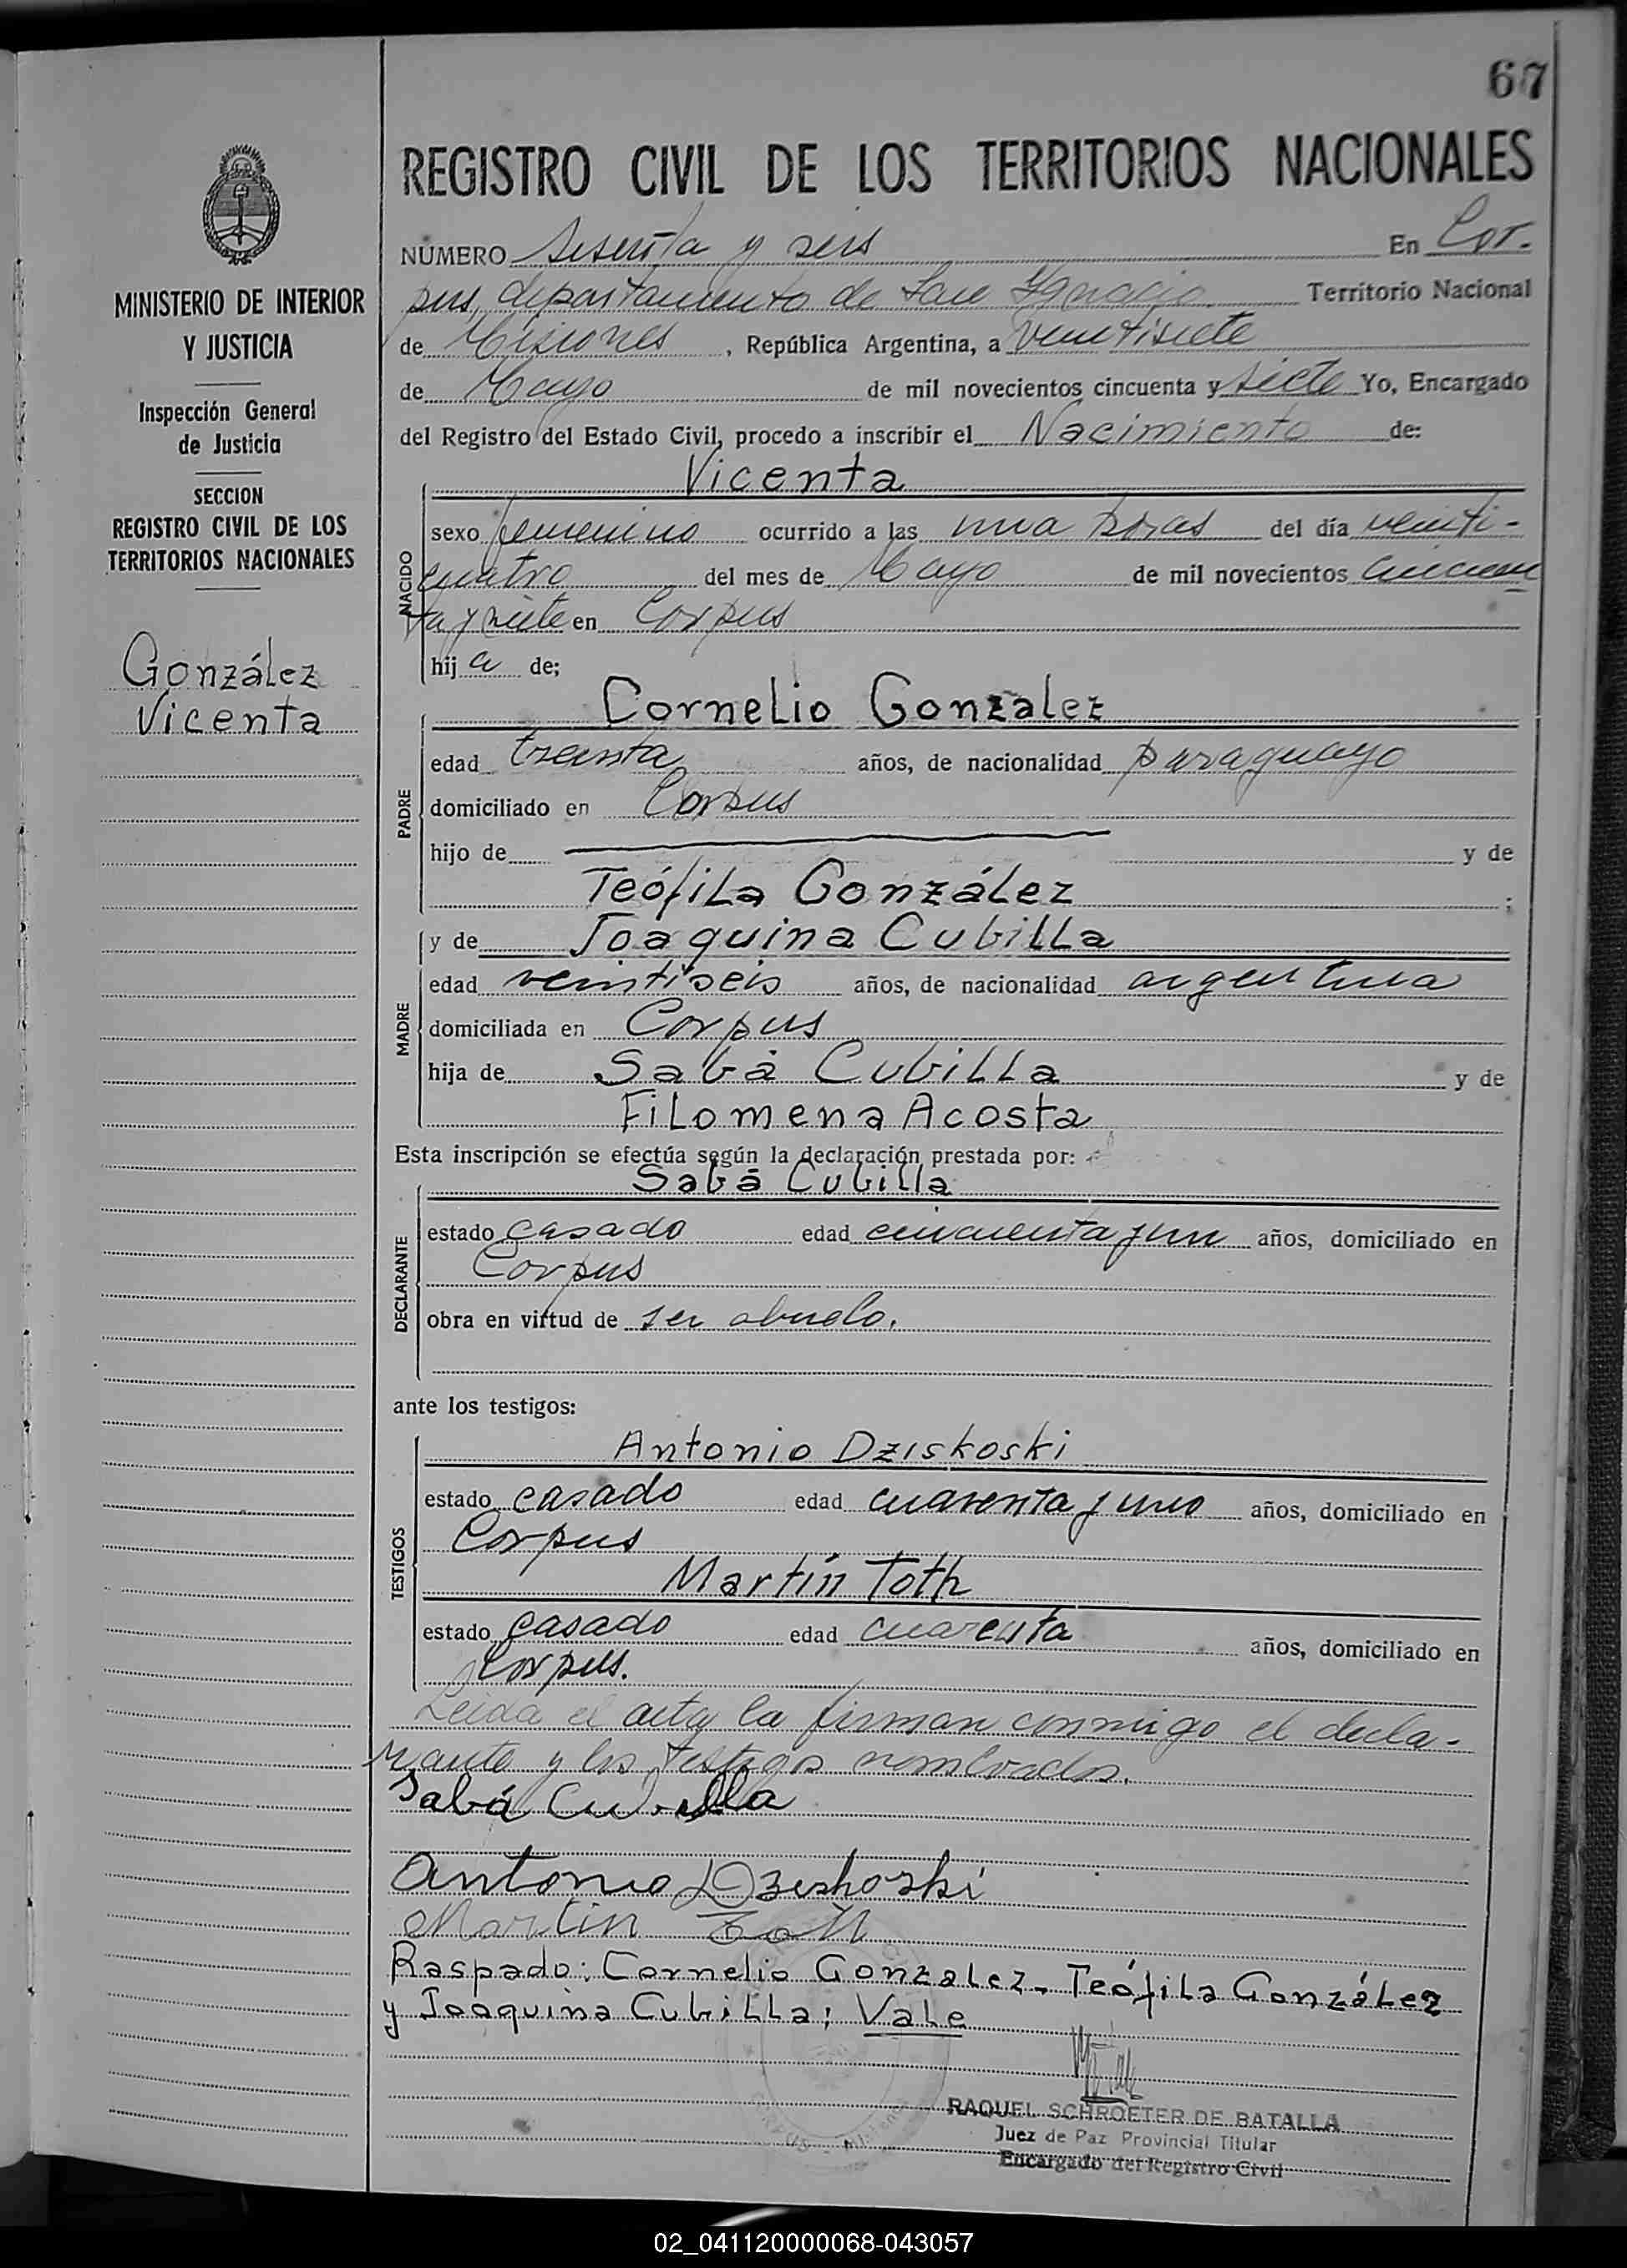 67
REGISTRO CIVIL DE LOS TERRITORIOS NACIONALES
NÚMERO sesenta y seis En Cor.
pus, departamento de San Ignacio Territorio Nacional
de Misiones, República Argentina, a veintisiete
de Mayo de mil novecientos cincuenta y siete Yo, Encargado
del Registro del Estado Civil, procedo a inscribir el Nacimiento de:
Vicenta
NACIDO
sexo femenino ocurrido a las una horas del día veinti-
cuatro del mes de Mayo de mil novecientos cincuen
ta y siete en Corpus
hija de;
Cornelio Gonzalez
PADRE
edad treinta años, de nacionalidad paraguayo
domiciliado en Corpus
hijo de y de
Teófila González ;
y de Joaquina Cubilla
MADRE
edad veintiseis años, de nacionalidad argentina
domiciliada en Corpus
hija de Sabá Cubilla y de
Filomena Acosta
Esta inscripción se efectúa según la declaración prestada por:
Sabá Cubilla
DECLARANTE
estado casado edad cincuenta y un años, domiciliado en
Corpus
obra en virtud de ser abuelo.
ante los testigos:
TESTIGOS
Antonio Dziskoski
estado casado edad cuarenta y uno años, domiciliado en
Corpus
Martín Toth
estado casado edad cuarenta años, domiciliado en
Corpus.
Leida el acta la firman conmigo el decla-
rante y los testigos nombrados.
Sabá Cubilla
Antonio Dzieskoski
Martin Toth
Raspado: Cornelio Gonzalez- Teófila González
y Joaquina Cubilla; Vale
RAQUEL SCHROETER DE BATALLA
Juez de Paz Provincial Titular
Encargado del Registro Civil
MINISTERIO DE INTERIOR
Y JUSTICIA
Inspección General
de Justicia
SECCION
REGISTRO CIVIL DE LOS
TERRITORIOS NACIONALES
González
Vicenta
02_041120000068-043057